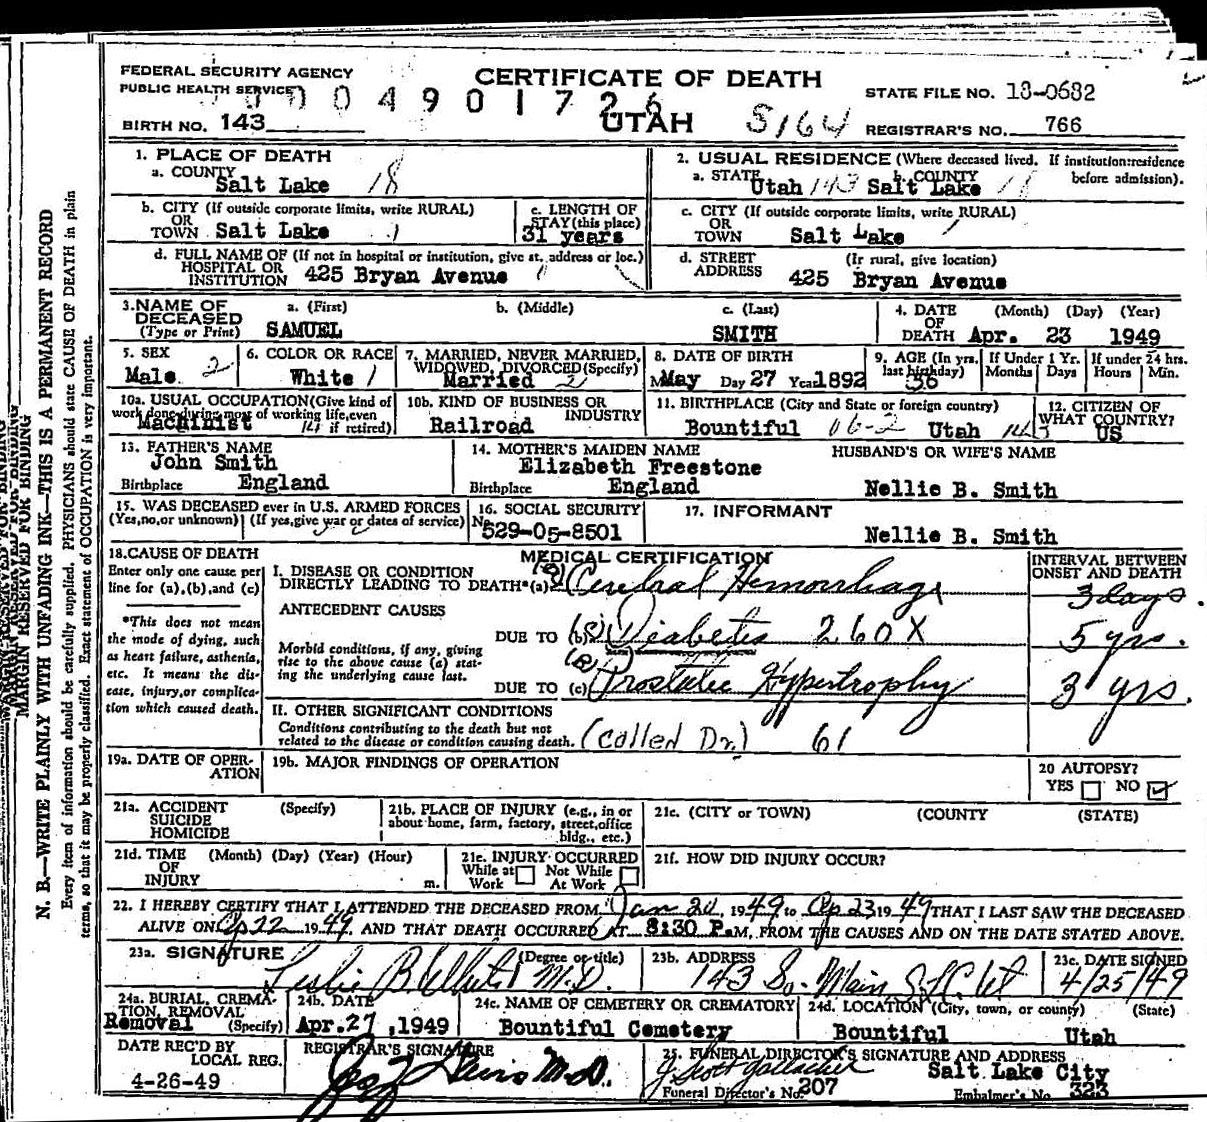 FEDERAL SECURITY AGENCY
PUBLIC HEALTH SERVICE
CERTIFICATE OF DEATH
STATE FILE NO. 18-0682
004901726
BIRTH NO. 143
UTAH 5164
REGISTRAR'S NO. 766
1. PLACE OF DEATH
a. COUNTY Salt Lake 18
2. USUAL RESIDENCE (Where deceased lived. If institution:residence before admission).
a. STATE Utah 143 b. COUNTY Salt Lake
b. CITY (If outside corporate limits, write RURAL) OR TOWN Salt Lake 1
c. LENGTH OF STAY (this place) 31 years
c. CITY (If outside corporate limits, write RURAL) OR TOWN Salt Lake
d. FULL NAME OF (If not in hospital or institution, give st. address or loc.) HOSPITAL OR INSTITUTION 425 Bryan Avenue
d. STREET ADDRESS (Ir rural, give location) 425 Bryan Avenue
3.NAME OF DECEASED (Type or Print) a. (First) SAMUEL b. (Middle) c. (Last) SMITH
4. DATE OF DEATH (Month) (Day) (Year) Apr. 23 1949
5. SEX Male 2
6. COLOR OR RACE White 1
7. MARRIED, NEVER MARRIED, WIDOWED, DIVORCED (Specify) Married 2
8. DATE OF BIRTH May Day 27 Year 1892
9. AGE (In yrs. last birthday) 56
If Under 1 Yr. Months Days
If under 24 hrs. Hours Min.
10a. USUAL OCCUPATION (Give kind of work done during most of working life, even if retired) Machinist
10b. KIND OF BUSINESS OR INDUSTRY Railroad
11. BIRTHPLACE (City and State or foreign country) Bountiful 06-2 Utah
12. CITIZEN OF WHAT COUNTRY? US
13. FATHER'S NAME John Smith
Birthplace England
14. MOTHER'S MAIDEN NAME Elizabeth Freestone
Birthplace England
HUSBAND'S OR WIFE'S NAME
Nellie B. Smith
15. WAS DECEASED ever in U.S. ARMED FORCES
(Yes,no,or unknown) (If yes,give war or dates of service)
16. SOCIAL SECURITY No. 529-05-8501
17. INFORMANT
Nellie B. Smith
18.CAUSE OF DEATH
Enter only one cause per line for (a),(b),and (c)
*This does not mean the mode of dying, such as heart failure, asthenia, etc. It means the disease, injury,or complication which caused death.
MEDICAL CERTIFICATION
INTERVAL BETWEEN ONSET AND DEATH
I. DISEASE OR CONDITION DIRECTLY LEADING TO DEATH*(a) Cerebral Hemorrhage 3 days.
ANTECEDENT CAUSES
DUE TO (b) Diabetes 260X 5 yrs.
Morbid conditions, if any, giving rise to the above cause (a) stating the underlying cause last.
DUE TO (c) Prostatic Hypertrophy 3 yrs.
II. OTHER SIGNIFICANT CONDITIONS
Conditions contributing to the death but not related to the disease or condition causing death. (Called Dr.) 61
19a. DATE OF OPERATION
19b. MAJOR FINDINGS OF OPERATION
20 AUTOPSY?
YES NO
21a. ACCIDENT SUICIDE HOMICIDE (Specify)
21b. PLACE OF INJURY (e.g., in or about home, farm, factory, street,office bldg., etc.)
21c. (CITY or TOWN) (COUNTY (STATE)
21d. TIME OF INJURY (Month) (Day) (Year) (Hour) m.
21e. INJURY OCCURRED While at Work Not While At Work
21f. HOW DID INJURY OCCUR?
22. I HEREBY CERTIFY THAT I ATTENDED THE DECEASED FROM Jan 20, 1949 to Ap 23 1949 THAT I LAST SAW THE DECEASED
ALIVE ON Ap 22 1949. AND THAT DEATH OCCURRED AT 8:30 P.M. FROM THE CAUSES AND ON THE DATE STATED ABOVE.
23a. SIGNATURE (Degree or title) Leslie B. M.D.
23b. ADDRESS 143 So. Main
23c. DATE SIGNED 4/25/49
24a. BURIAL, CREMATION, REMOVAL (Specify) Removal
24b. DATE Apr.27 ,1949
24c. NAME OF CEMETERY OR CREMATORY Bountiful Cemetery
24d. LOCATION (City, town, or county) (State) Bountiful Utah
DATE REC'D BY LOCAL REG. 4-26-49
REGISTRAR'S SIGNATURE M.D.
25. FUNERAL DIRECTOR'S SIGNATURE AND ADDRESS
J. Scott Gallacher Salt Lake City
Funeral Director's No. 207 Embalmer's No. 323
MARGIN RESERVED FOR BINDING
N. B.—WRITE PLAINLY WITH UNFADING INK—THIS IS A PERMANENT RECORD
Every item of information should be carefully supplied. PHYSICIANS should state CAUSE OF DEATH in plain
terms, so that it may be properly classified. Exact statement of OCCUPATION is very important.